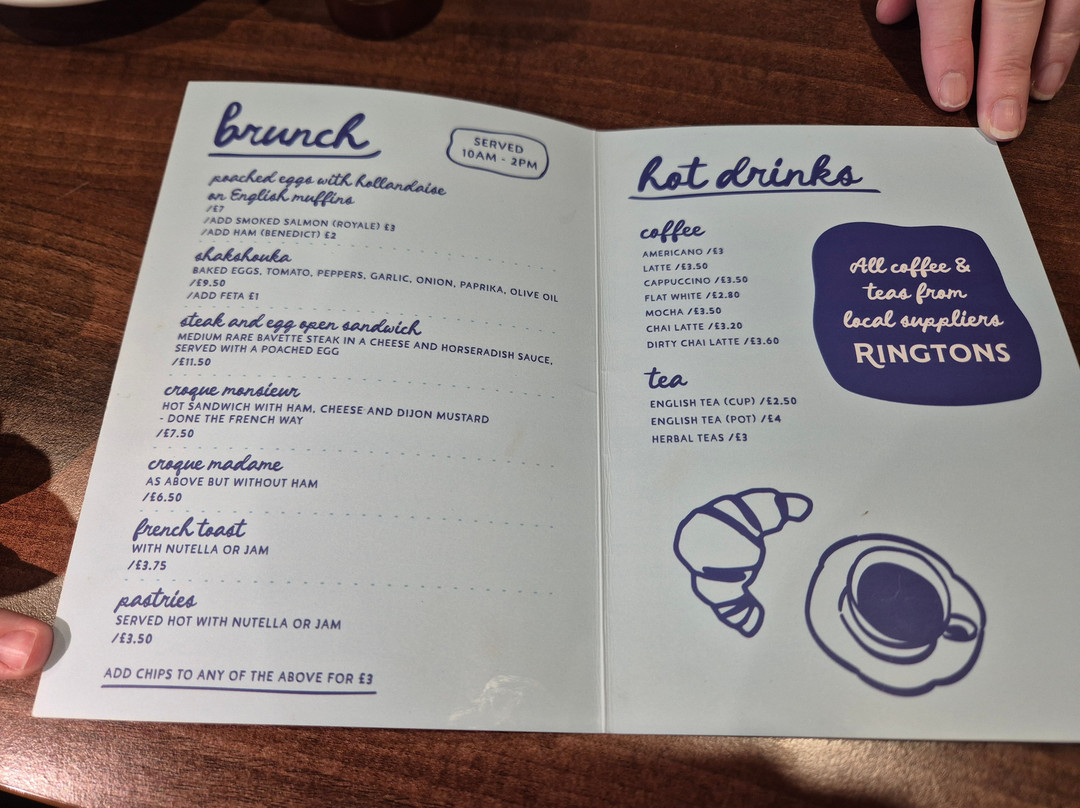 brunch
SERVED
10AM - 2PM
poached eggs with hollandaise
on English muffins
/£7
/ADD SMOKED SALMON (ROYALE) £3
/ADD HAM (BENEDICT) £2
shakshouka
BAKED EGGS, TOMATO, PEPPERS, GARLIC, ONION, PAPRIKA, OLIVE OIL
/£9.50
/ADD FETA £1
steak and egg open sandwich
MEDIUM RARE BAVETTE STEAK IN A CHEESE AND HORSERADISH SAUCE,
SERVED WITH A POACHED EGG
/£11.50
croque monsieur
HOT SANDWICH WITH HAM, CHEESE AND DIJON MUSTARD
- DONE THE FRENCH WAY
/£7.50
croque madame
AS ABOVE BUT WITHOUT HAM
/£6.50
french toast
WITH NUTELLA OR JAM
/£3.75
pastries
SERVED HOT WITH NUTELLA OR JAM
/£3.50
ADD CHIPS TO ANY OF THE ABOVE FOR £3
hot drinks
coffee
AMERICANO /£3
LATTE /£3.50
CAPPUCCINO /£3.50
FLAT WHITE /£2.80
MOCHA /£3.50
CHAI LATTE /£3.20
DIRTY CHAI LATTE /£3.60
tea
ENGLISH TEA (CUP) /£2.50
ENGLISH TEA (POT) /£4
HERBAL TEAS /£3
All coffee &
teas from
local suppliers
RINGTONS